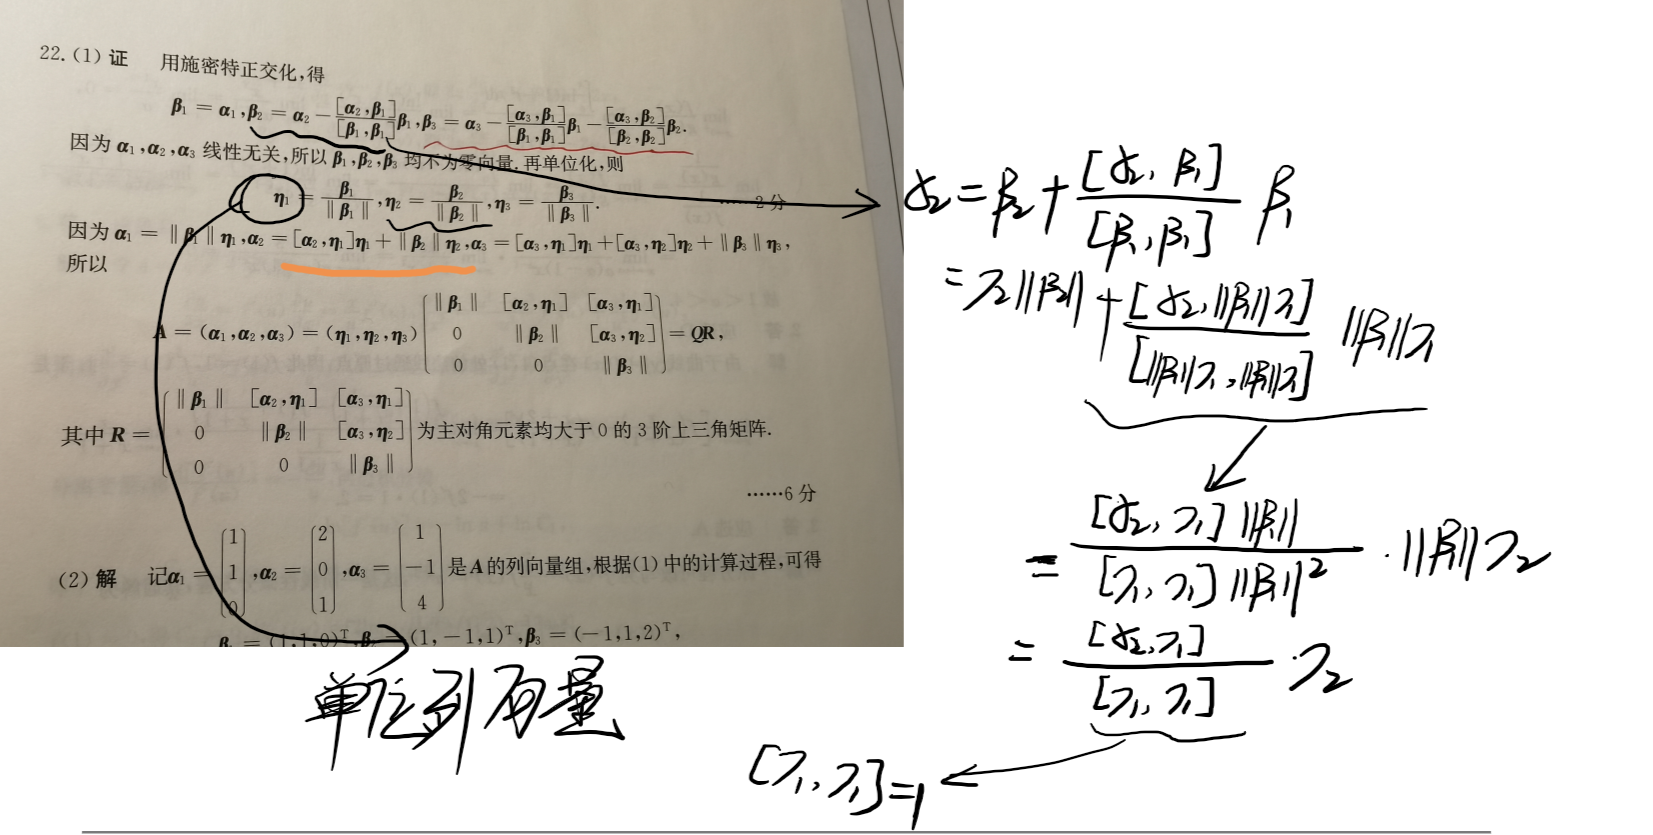 22.(1) 证 用施密特正交化,得
β₁ = α₁,β₂ = α₂ − [α₂,β₁]/[β₁,β₁] β₁,β₃ = α₃ − [α₃,β₁]/[β₁,β₁] β₁ − [α₃,β₂]/[β₂,β₂] β₂.
因为 α₁,α₂,α₃ 线性无关,所以 β₁,β₂,β₃ 均不为零向量.再单位化,则
η₁ = β₁/‖β₁‖,η₂ = β₂/‖β₂‖,η₃ = β₃/‖β₃‖. ……2分
因为 α₁ = ‖β₁‖η₁,α₂ = [α₂,η₁]η₁ + ‖β₂‖η₂,α₃ = [α₃,η₁]η₁ + [α₃,η₂]η₂ + ‖β₃‖η₃,
所以
A = (α₁,α₂,α₃) = (η₁,η₂,η₃) ( ‖β₁‖ [α₂,η₁] [α₃,η₁]
0 ‖β₂‖ [α₃,η₂]
0 0 ‖β₃‖ ) = QR,
其中 R = ( ‖β₁‖ [α₂,η₁] [α₃,η₁]
0 ‖β₂‖ [α₃,η₂]
0 0 ‖β₃‖ ) 为主对角元素均大于 0 的 3 阶上三角矩阵.
……6分
(2) 解 记α₁ = (1 1 0),α₂ = (2 0 1),α₃ = (1 −1 4) 是 A 的列向量组,根据(1) 中的计算过程,可得
β₁ = (1,1,0)ᵀ,β₂ = (1,−1,1)ᵀ,β₃ = (−1,1,2)ᵀ,
单位列向量
α₂ = β₂ + [α₂,β₁]/[β₁,β₁] β₁
= η₂‖β₂‖ + [α₂,‖β₁‖η₁]/[‖β₁‖η₁,‖β₁‖η₁] ‖β₁‖η₁
= [α₂,η₁]‖β₁‖/[η₁,η₁]‖β₁‖² · ‖β₁‖η₂
= [α₂,η₁]/[η₁,η₁] · η₂
[η₁,η₁]=1